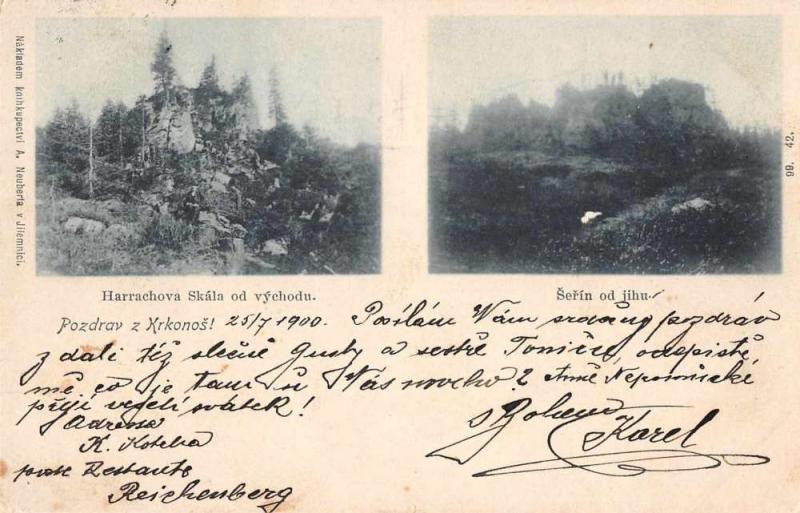 Nákladem knihkupectví A. Neuberta v Jilemnici.
99. 42.
Harrachova Skála od východu.
Šeřín od jihu.
Pozdrav z Krkonoš! 25/7 1900. Posílám Vám srdečný pozdráv
z dáli též slečně Gusty a sestře Toničce, odepiště
mě co je tam u Vás nového? Anně Nepomucké
přeji veselí svátek!
s Bohem
Karel
Adressa
K. Kotelka
poste Restante
Reichenberg